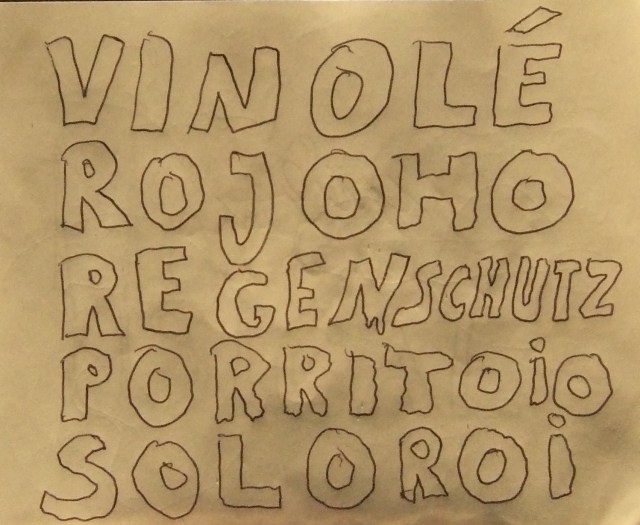 VINOLÉ
ROJOHO
REGENSCHUTZ
PORRITOiO
SOLOROi